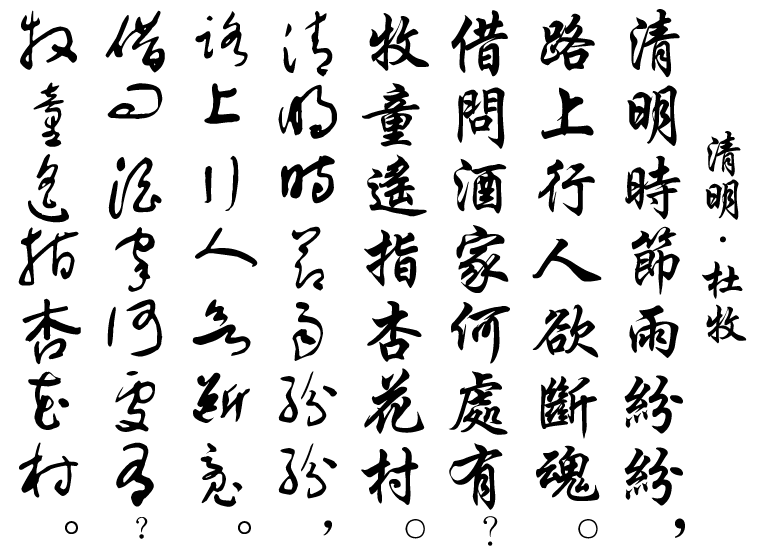 清明·杜牧
清明時節雨紛紛，
路上行人欲斷魂。
借問酒家何處有？
牧童遙指杏花村。
清明時節雨紛紛，
路上行人欲斷魂。
借問酒家何處有？
牧童遙指杏花村。